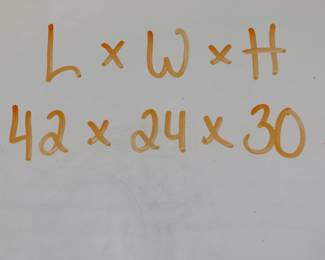 L x W x H
42 x 24 x 30